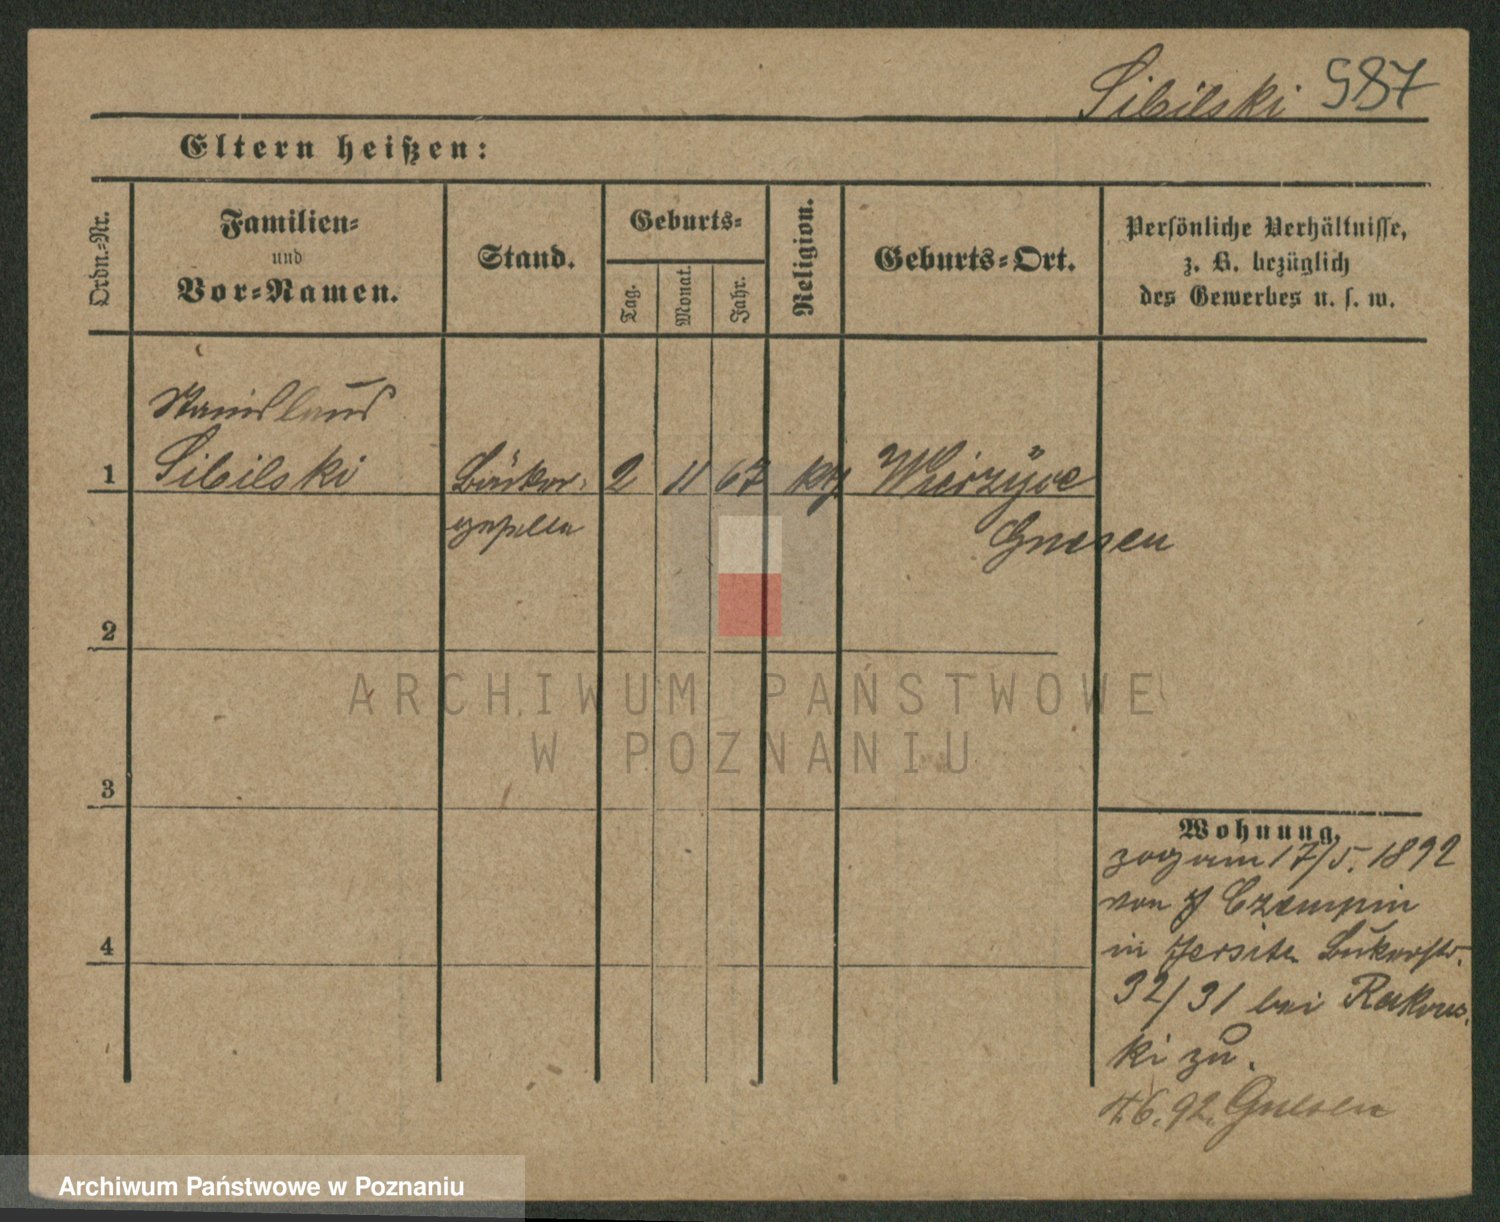 Sibilski 987
Eltern heißen:
Ordn.-Nr.
Familien-
und
Vor-Namen.
Stand.
Geburts-
Tag.
Monat.
Jahr.
Religion.
Geburts-Ort.
Persönliche Verhältnisse,
z. B. bezüglich
des Gewerbes u. s. w.
Stanislaus
1 Sibilski Bäcker- 2 11 67 kth Wierzyce
geselle Gnesen
2
3
4
ARCHIWUM PAŃSTWOWE
W POZNANIU
Wohnung.
zog am 17/5. 1892
von Czempin
in Jersitz Bukerstr.
32/31 bei Rakows
ki zu.
4.6.92. Gnesen
Archiwum Państwowe w Poznaniu